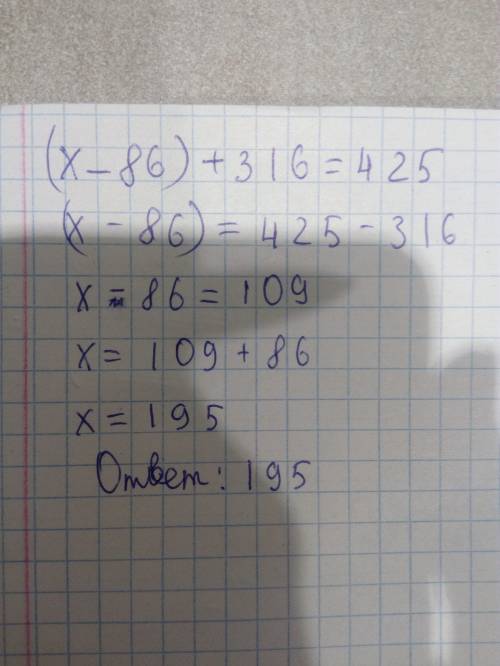 (x - 86) + 316 = 425
(x - 86) = 425 - 316
x - 86 = 109
x = 109 + 86
x = 195
Ответ: 195